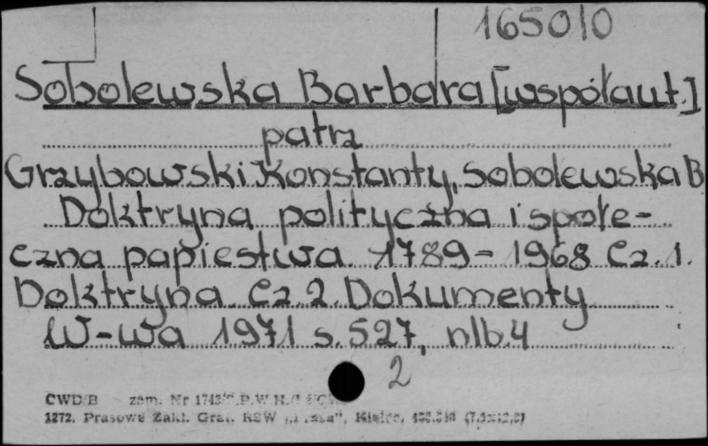 165010
Sobolewska Barbara [współaut.]
patrz
Grzybowski Konstanty, Sobolewska B
Doktryna polityczna i społe-
czna papiestwa 1789-1968 Cz. 1.
Doktryna Cz 2. Dokumenty
W-wa 1971 s. 527, nlb. 4
2
CWD/B zam. Nr
1272. Prasowe Zakł. Graf. RSW „Prasa", Kielce,